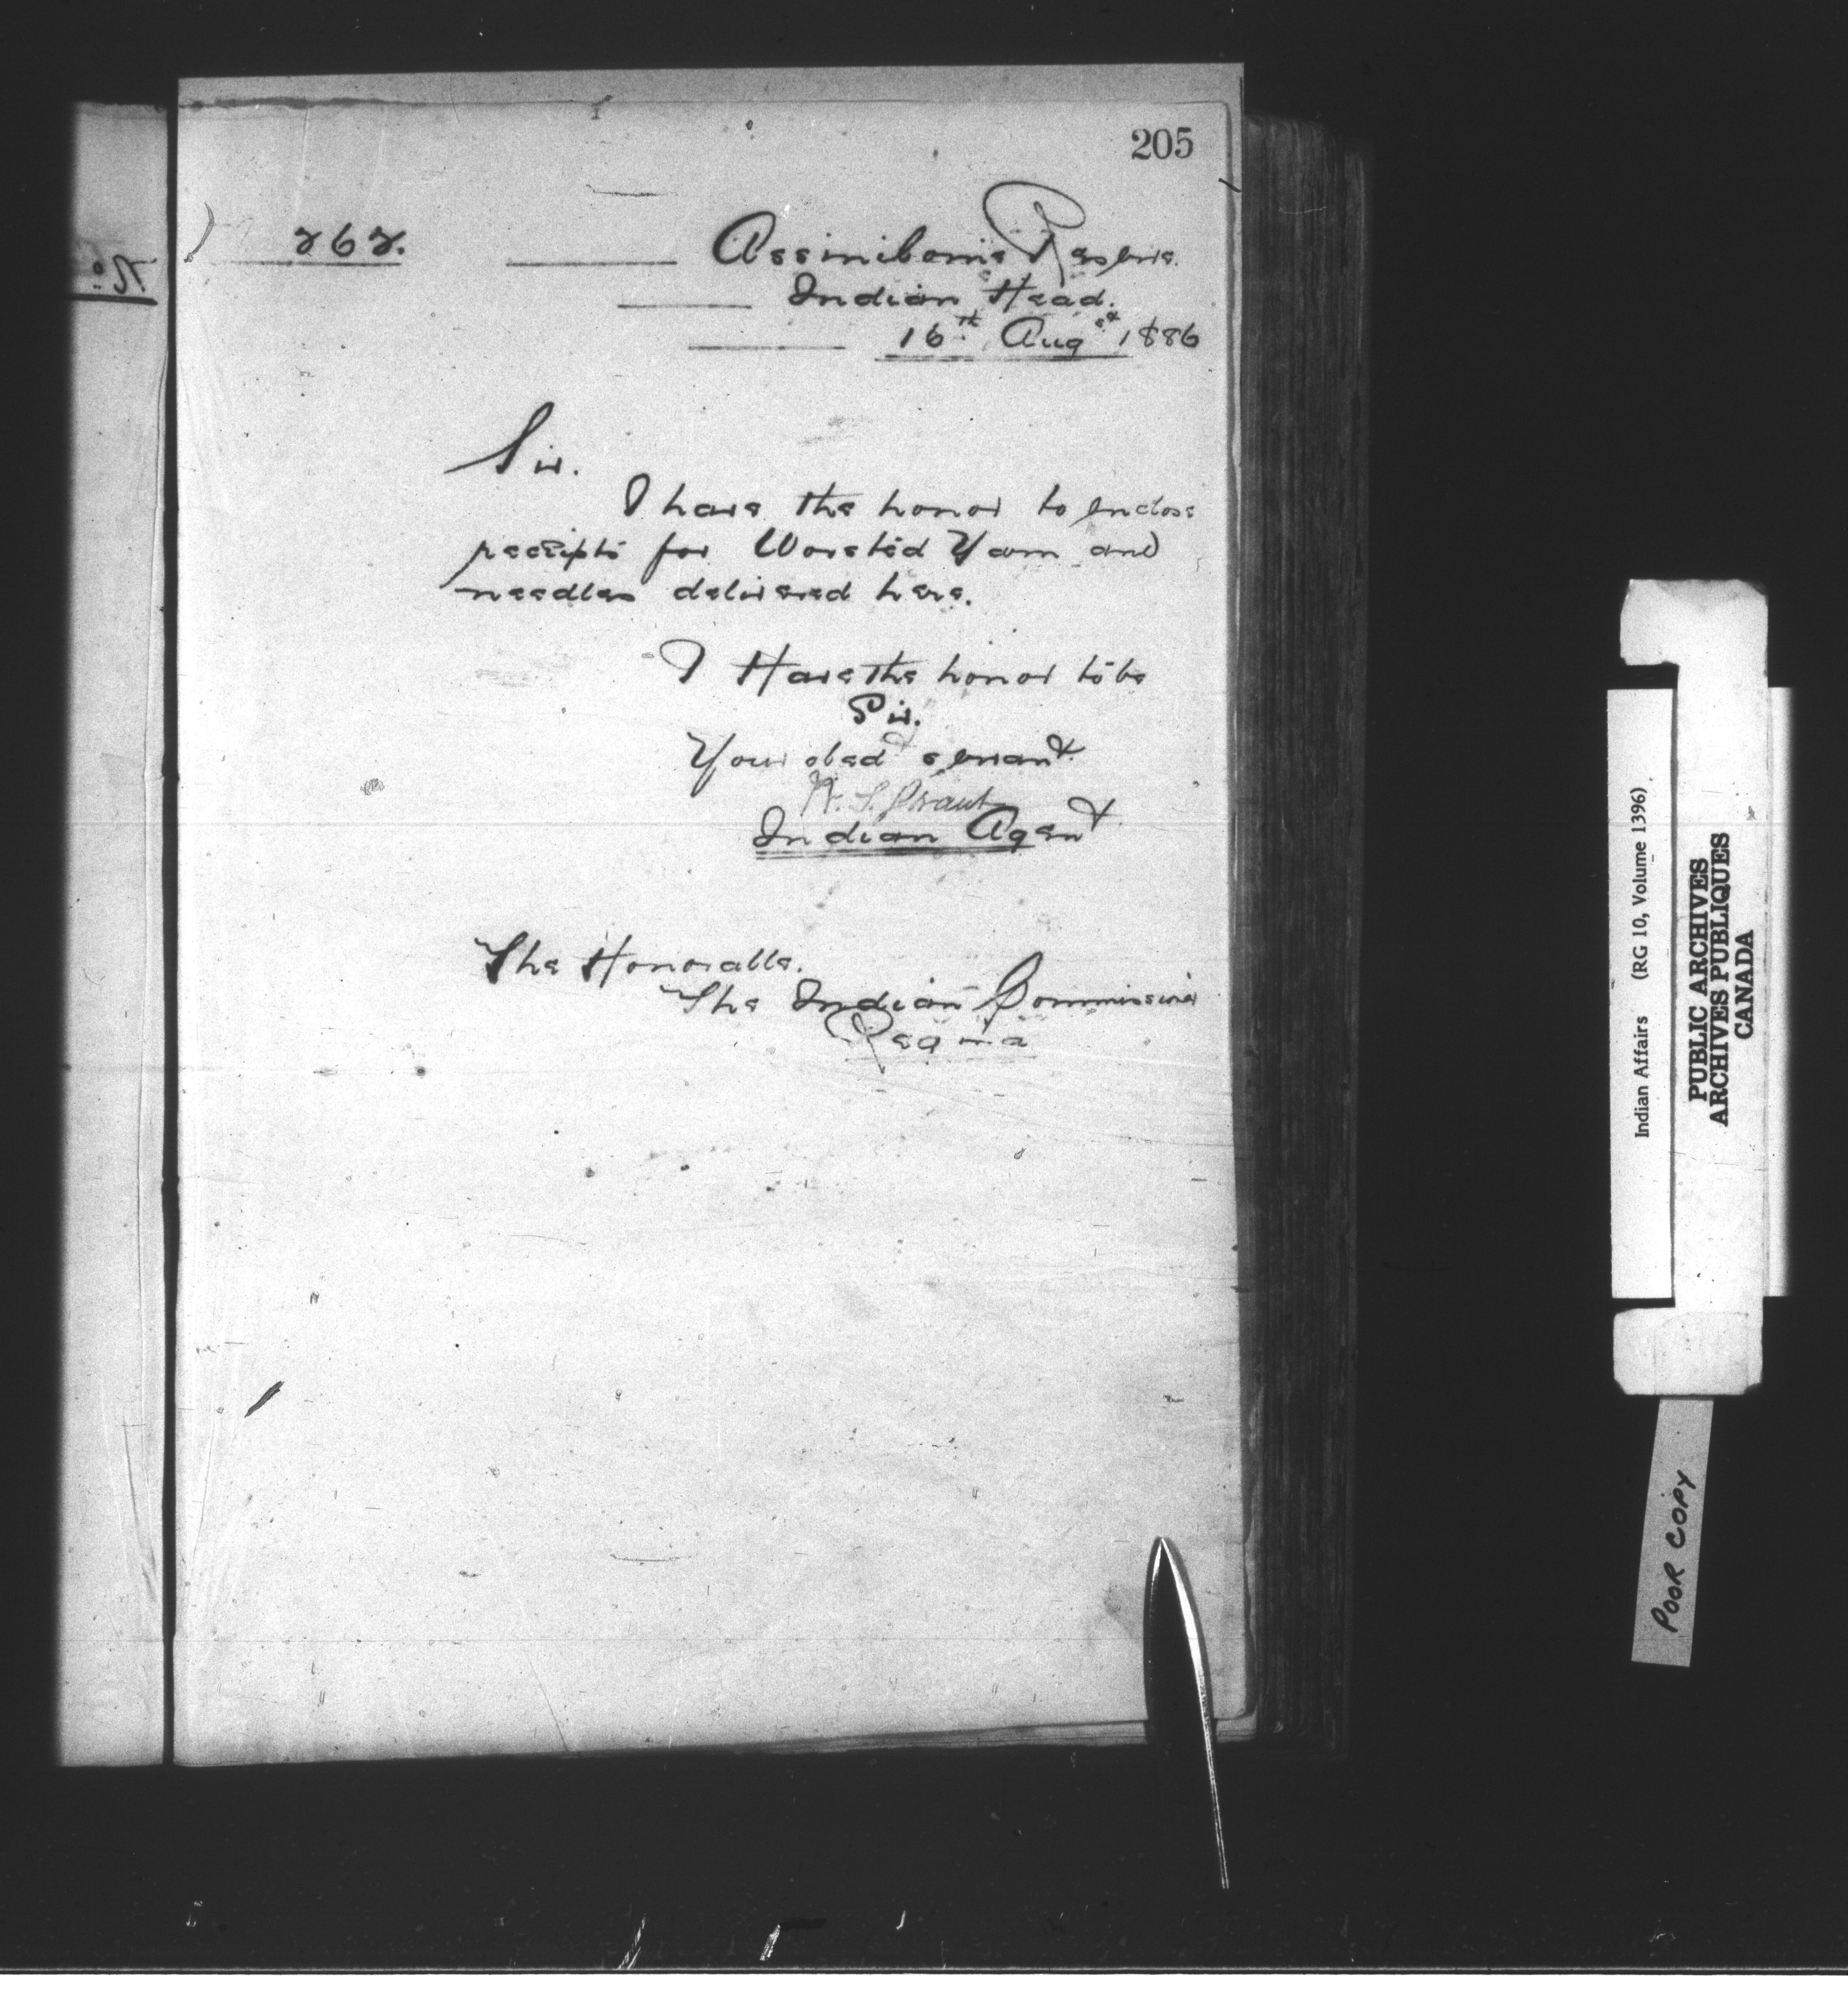 205
262.
Assiniboine Reserve.
Indian Head.
16th Augst 1886
Sir.
I have the honor to enclose
receipts for Worsted Yarn and
needles delivered here.
I Have the honor to be
Sir.
Your obedt servant
W. S. Grant
Indian Agent
The Honorable.
The Indian Commissioner
Regina
Indian Affairs (RG 10, Volume 1396)
PUBLIC ARCHIVES
ARCHIVES PUBLIQUES
CANADA
POOR COPY